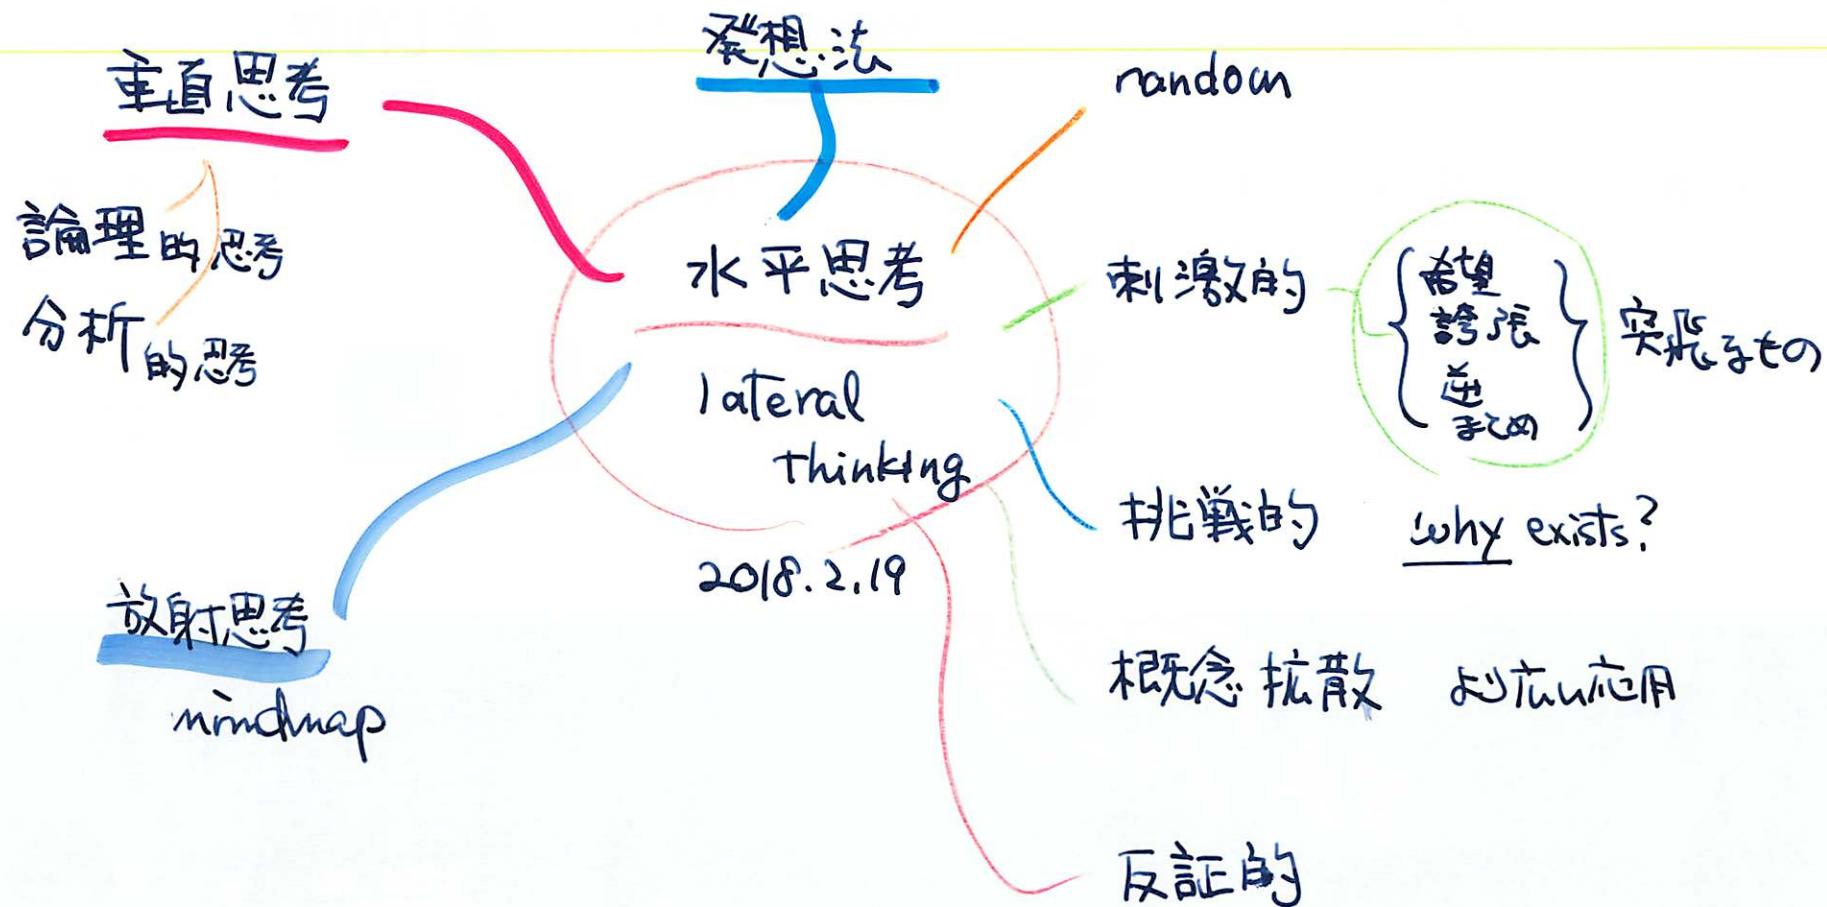 発想法
垂直思考
論理的思考
分析的思考
水平思考
lateral
thinking
2018.2.19
放射思考
mindmap
random
刺激的
希望
誇張
逆
まとめ
突飛なもの
挑戦的 why exists?
概念拡散 より広い応用
反証的